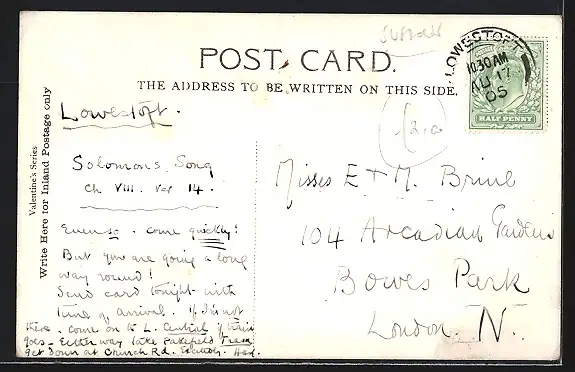 Suffolk
POST CARD.
THE ADDRESS TO BE WRITTEN ON THIS SIDE.
LOWESTOFT
10.30 AM
AU 17
05
HALF PENNY
Valentine's Series
Write Here for Inland Postage only
Lowestoft.
Solomons Song
Ch VIII. Ver 14.
Even so - come quickly!
But you are going a long
way round!
Send card tonight with
time of arrival. If I'm not
there. Come on to L. Central if train
goes - Either way take Pakefield Tram
get down at Church Rd.
2,0
Misses E & M. Brine
104 Arcadian Gardens
Bowes Park
London. N.